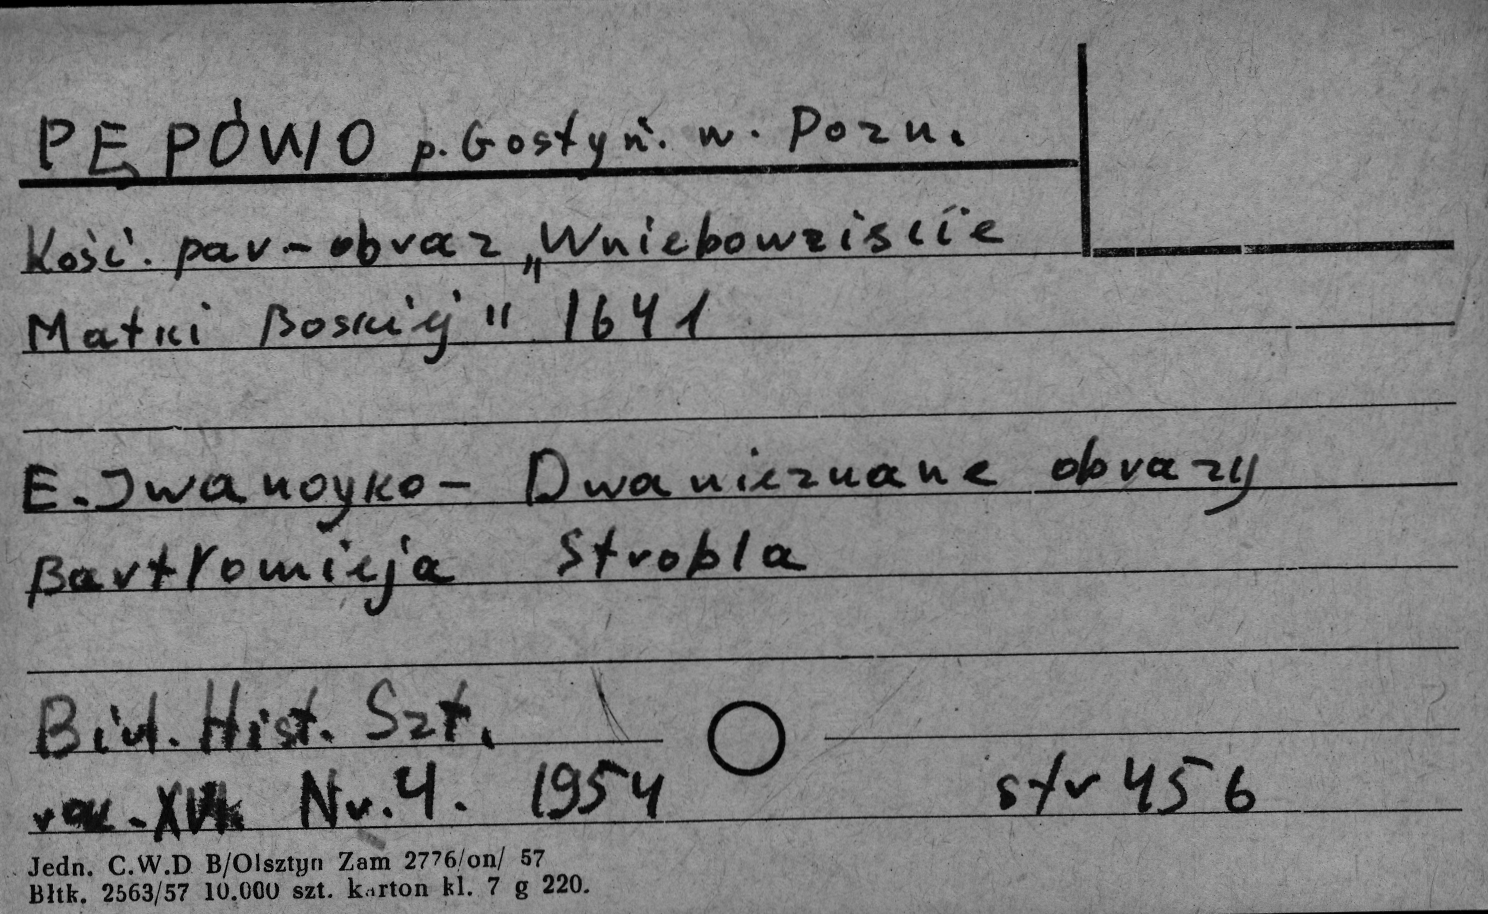 PĘPÓWO p. Gostyń. w. Pozn.
Kość. par - obraz „Wniebowzięcie
Matki Boskiej" 1641
E. Iwanoyko - Dwa nieznane obrazy
Bartłomieja Strobla
Biul. Hist. Szt.
rok. XVI. Nr. 4. 1954 str 456
Jedn. C.W.D B/Olsztyn Zam 2776/on/ 57
Błtk. 2563/57 10.000 szt. karton kl. 7 g 220.